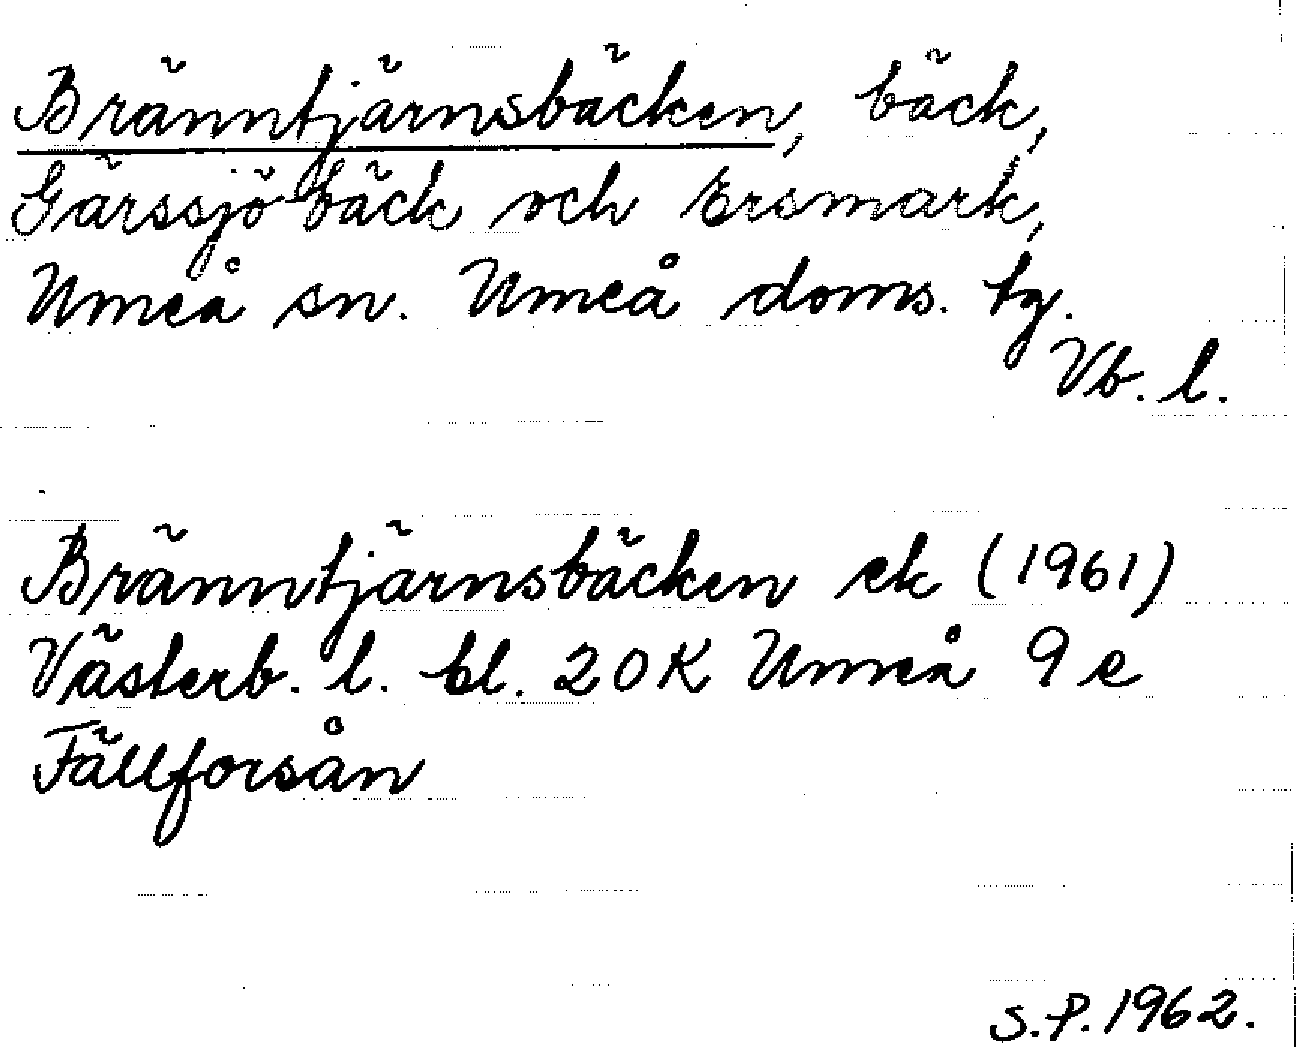 Bränntjärnsbäcken, bäck,
Gärssjöbäck och Ersmark,
Umeå sn. Umeå doms. tg.
Vb. l.
Bränntjärnsbäcken ek (1961)
Västerb. l. bl. 20K Umeå 9e
Fällforsån
S.P. 1962.